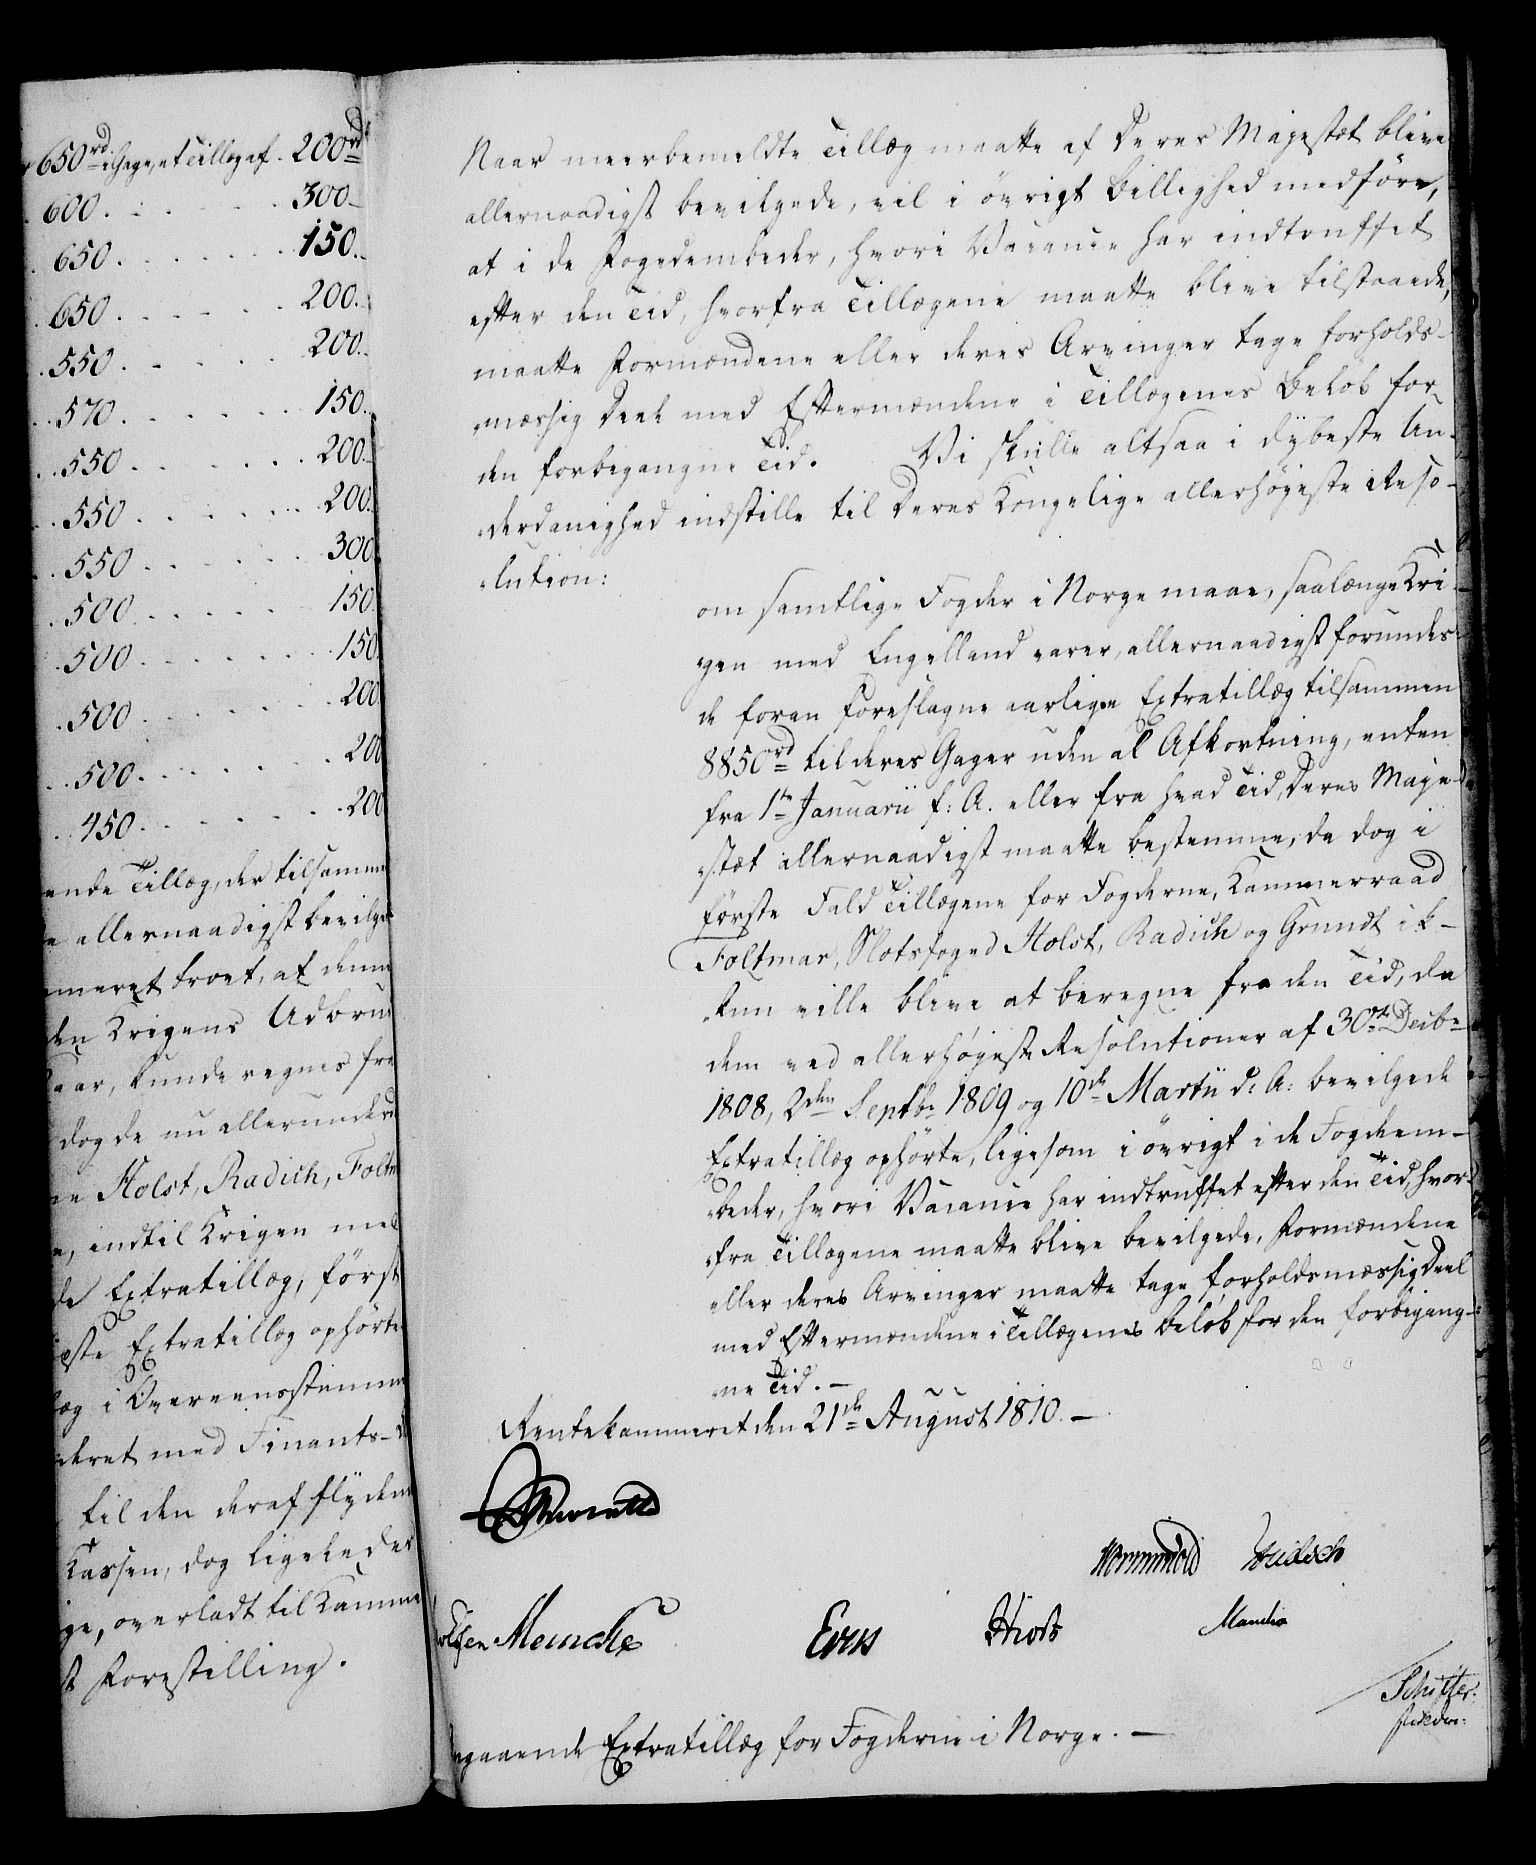 650rd i Gage, et Tillæg af . 200rd
600 . . . . . 300 -
650 . . . . . . 150 . -
650 . . . . . 200 . -
550 . . . . . 200 . -
570 . . . . . . 150 .
550 . . . . . . 200 . -
550 . . . . . . 200 .
550 . . . . . . 300
500 . . . . . 150 .
500 . . . . . . 150
500 . . . . . . 200
500 . . . . . . 200
450 . . . . . . 200
ende Tillæg, der tilsamme
e allernaadigst bevilge
meret troet, at denne
den Krigens Udbrud
aar, kunde regnes fra
dog de nu allerunderd
ne Holst, Radich, Foltm
e, indtil Krigen med
de Extratillæg, først
æste Extratillæg ophørte
æg i Overeensstemme
deret med Finants-
til den deraf flydende
Kassen, dog ligeledes
ige, overladt til Kamme
st Forestilling .
Naar meerbemeldte Tillæg maatte af Deres Majestæt blive
allernaadigst bevilgede, vil i øvrigt Billighed medføre,
at i de Fogedembeder, hvori Vacance har indtruffet
efter den Tid, hvorfra Tillægene maatte blive tilstaaede,
maatte Formændene eller deres Arvinger tage forholds-
mæssig Deel med Eftermændene i Tillægenes Beløb for
den forbigangne Tid. Vi skulle altsaa i dybeste Un-
derdanighed indstille til Deres Kongelige allerhøyeste Reso-
lution:
om samtlige Fogder i Norge maae, saalænge Kri-
gen med Engelland varer, allernaadigst forundes
de foran foreslagne aarlige Extratillæg tilsammen
8850rd til deres Gager uden al Afkortning, enten
fra 1te Januarii f: A. eller fra hvad Tid, Deres Maje-
stæt allernaadigst maatte bestemme, da dog i
første Fald Tillægene for Fogderne, Kammerraad
Foltmar, Slotsfoged Holst, Radich og Grundt ik-
kun ville blive at beregne fra den Tid, da
dem ved allerhøyeste Resolutioner af 30te Decbr
1808, 2den Septbr 1809 og 10de Martii d: A: bevilgede
Extratillæg ophørte, ligesom i øvrigt i de Fogdem-
beder, hvori Vacance har indtruffet efter den Tid, hvor-
fra Tillægene maatte blive bevilgede, Formændene
eller deres Arvinger maatte tage forholdsmæssig Deel
med Eftermændene i Tillægenes Beløb for den forbigang-
ne Tid. -
Rentekammeret den 21de August 1810. -
Wormskiold
Meincke Hiort
gaaende Extratillæg for Fogderne i Norge. -